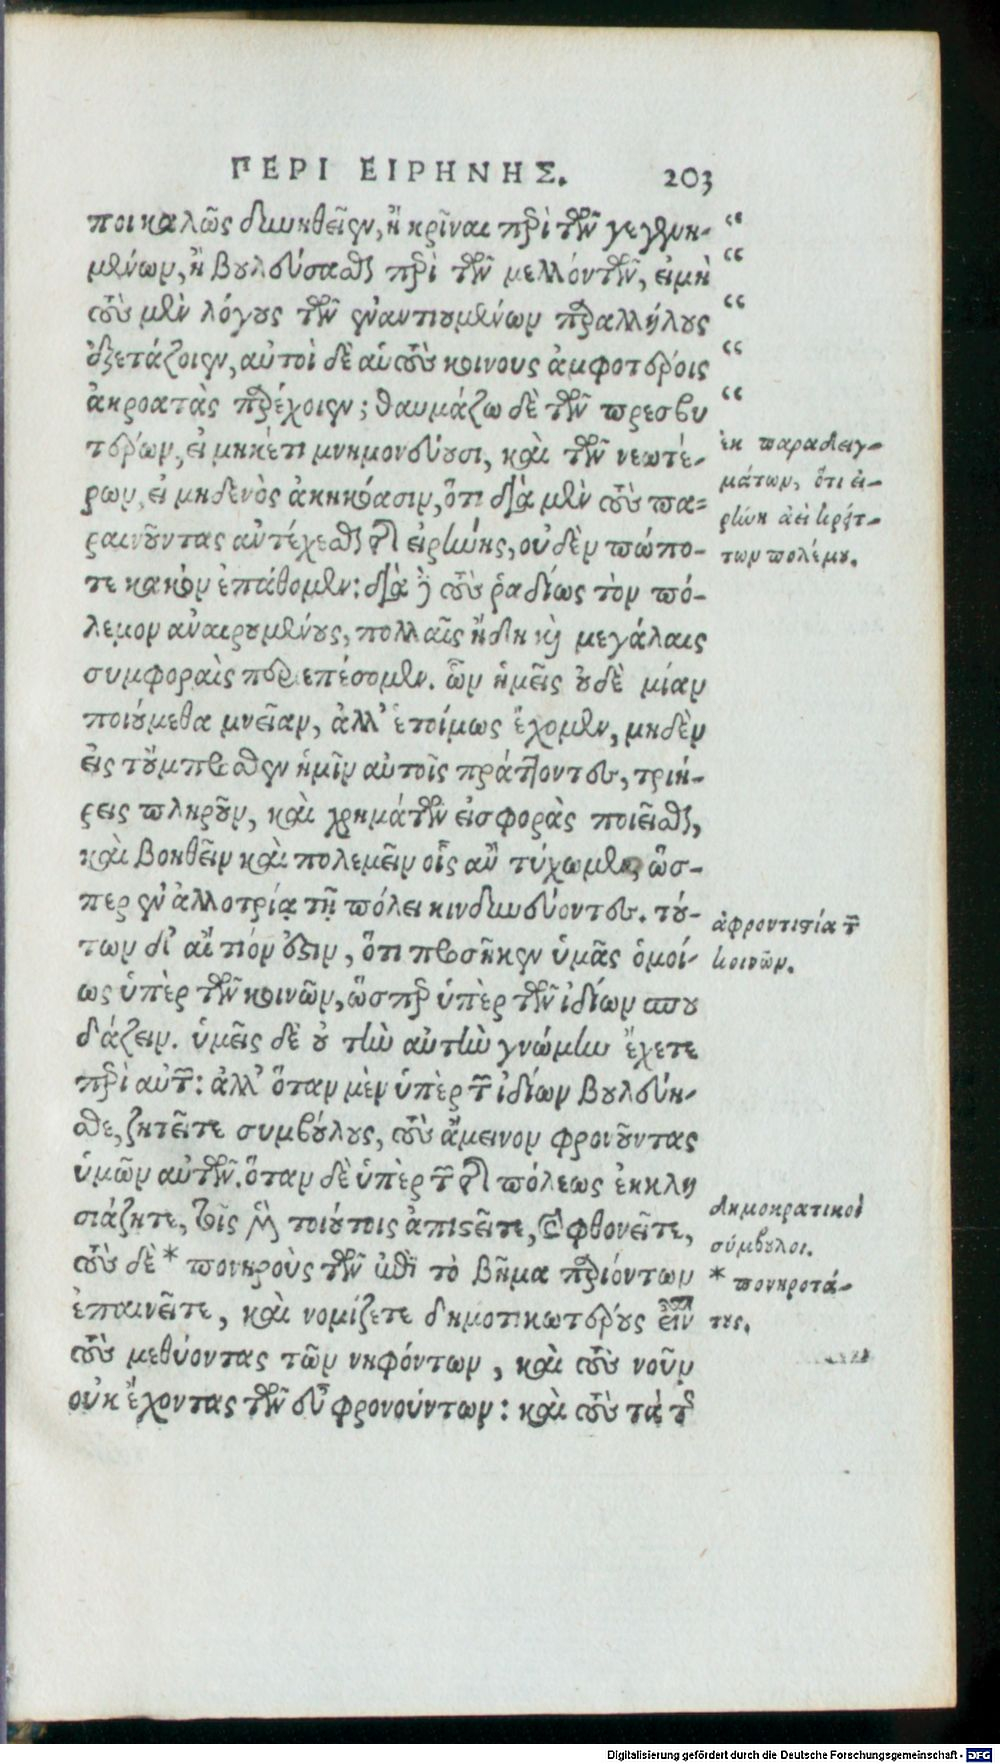 ΠΕΡΙ ΕΙΡΗΝΗΣ. 203
ποι καλῶς δυνηθεῖεν, ἢ κρῖναι περὶ τῶν γεγενη- “
μένων, ἢ βουλεύσασθαι περὶ τῶν μελλόντων, εἰ μὴ “
τοὺς μὲν λόγους τῶν ἐναντιουμένων παραλλήλους “
ἐξετάζοιεν, αὐτοὶ δὲ αὑτοὺς κοινους ἀμφοτέροις “
ἀκροατὰς παρέχοιεν; θαυμάζω δὲ τῶν πρεσβυ “
τέρων, εἰ μηκέτι μνημονεύουσι, καὶ τῶν νεωτέ-
ρων, εἰ μηδενὸς ἀκηκόασιν, ὅτι διὰ μὲν τοὺς πα-
ραινοῦντας ἀντέχεσθαι τῆς εἰρήνης, οὐδὲν πώπο-
τε κακὸν ἐπάθομεν: διὰ δὲ τοὺς ῥαδίως τὸν πό-
λεμον ἀναιρουμένους, πολλαῖς ἤδη καὶ μεγάλαις
συμφοραῖς περιεπέσομεν. ὧν ἡμεῖς οὐδὲ μίαν
ποιούμεθα μνείαν, ἀλλ’ ἑτοίμως ἔχομεν, μηδὲν
εἰς τοὔμπροσθεν ἡμῖν αὐτοῖς πράττοντες, τριή-
ρεις πληροῦν, καὶ χρημάτων εἰσφορὰς ποιεῖσθαι,
καὶ βοηθεῖν καὶ πολεμεῖν οἷς ἂν τύχωμεν, ὥσ-
περ ἐν ἀλλοτρίᾳ τῇ πόλει κινδυνεύοντες. τού-
των δ’ αἴτιόν ἐστιν, ὅτι προσῆκεν ὑμᾶς ὁμοί-
ως ὑπὲρ τῶν κοινῶν, ὥσπερ ὑπὲρ τῶν ἰδίων σπου
δάζειν. ὑμεῖς δὲ οὐ τὴν αὐτὴν γνώμην ἔχετε
περὶ αὐτῶν: ἀλλ’ ὅταν μὲν ὑπὲρ τῶν ἰδίων βουλεύη-
σθε, ζητεῖτε συμβούλους, τοὺς ἄμεινον φρονοῦντας
ὑμῶν αὐτῶν. ὅταν δὲ ὑπὲρ τῶν τῆς πόλεως ἐκκλη
σιάζητε, τοῖς μὲν τοιούτοις ἀπιστεῖτε, καὶ φθονεῖτε,
τοὺς δὲ * πονηροὺς τῶν ἐπὶ τὸ βῆμα παριόντων
ἐπαινεῖτε, καὶ νομίζετε δημοτικωτέρους εἶναι
τοὺς μεθύοντας τῶν νηφόντων, καὶ τοὺς νοῦν
οὐκ ἔχοντας τῶν εὖ φρονούντων: καὶ τοὺς τὰ τῆς
ἐκ παραδειγ-
μάτων, ὅτι εἰ-
ρήνη ἀεὶ κρείτ-
των πολέμου.
ἀφροντιστία τῶν
κοινῶν.
δημοκρατικοὶ
σύμβουλοι.
* πονηροτά-
τους.
Digitalisierung gefördert durch die Deutsche Forschungsgemeinschaft - DFG